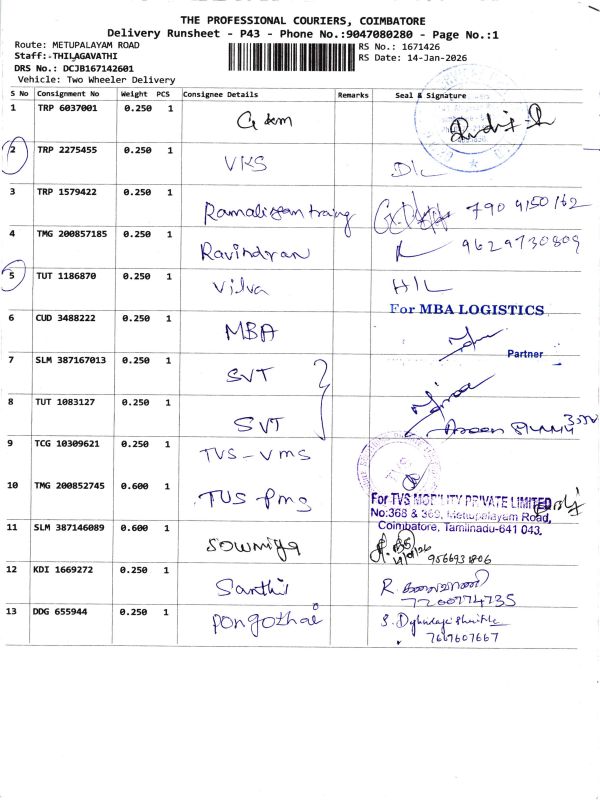 THE PROFESSIONAL COURIERS, COIMBATORE
Delivery Runsheet - P43 - Phone No.:9047080280 - Page No.:1
Route: METUPALAYAM ROAD
RS No.: 1671426
Staff:-THILAGAVATHI
RS Date: 14-Jan-2026
DRS No.: DCJB167142601
Vehicle: Two Wheeler Delivery
S No Consignment No Weight PCS Consignee Details Remarks Seal & Signature
1 TRP 6037001 0.250 1
2 TRP 2275455 0.250 1 VKS D/L
3 TRP 1579422 0.250 1 Ramalingam 790 9150162
4 TMG 200857185 0.250 1 Ravindran 9629730809
5 TUT 1186870 0.250 1 Vilva H/L
For MBA LOGISTICS
6 CUD 3488222 0.250 1 MBA
Partner
7 SLM 387167013 0.250 1 SVT
8 TUT 1083127 0.250 1 SVT
9 TCG 10309621 0.250 1 TVS-VMS
10 TMG 200852745 0.600 1 TVS Pmg
For TVS MOBILITY PRIVATE LIMITED
No:368 & 369, Mettupalayam Road,
Coimbatore, Tamilnadu-641 043.
11 SLM 387146089 0.600 1 Sowmiya 9566931806
12 KDI 1669272 0.250 1 Santhi R. கலைவாணி
7200774735
13 DDG 655944 0.250 1 Pongothai
7667607667